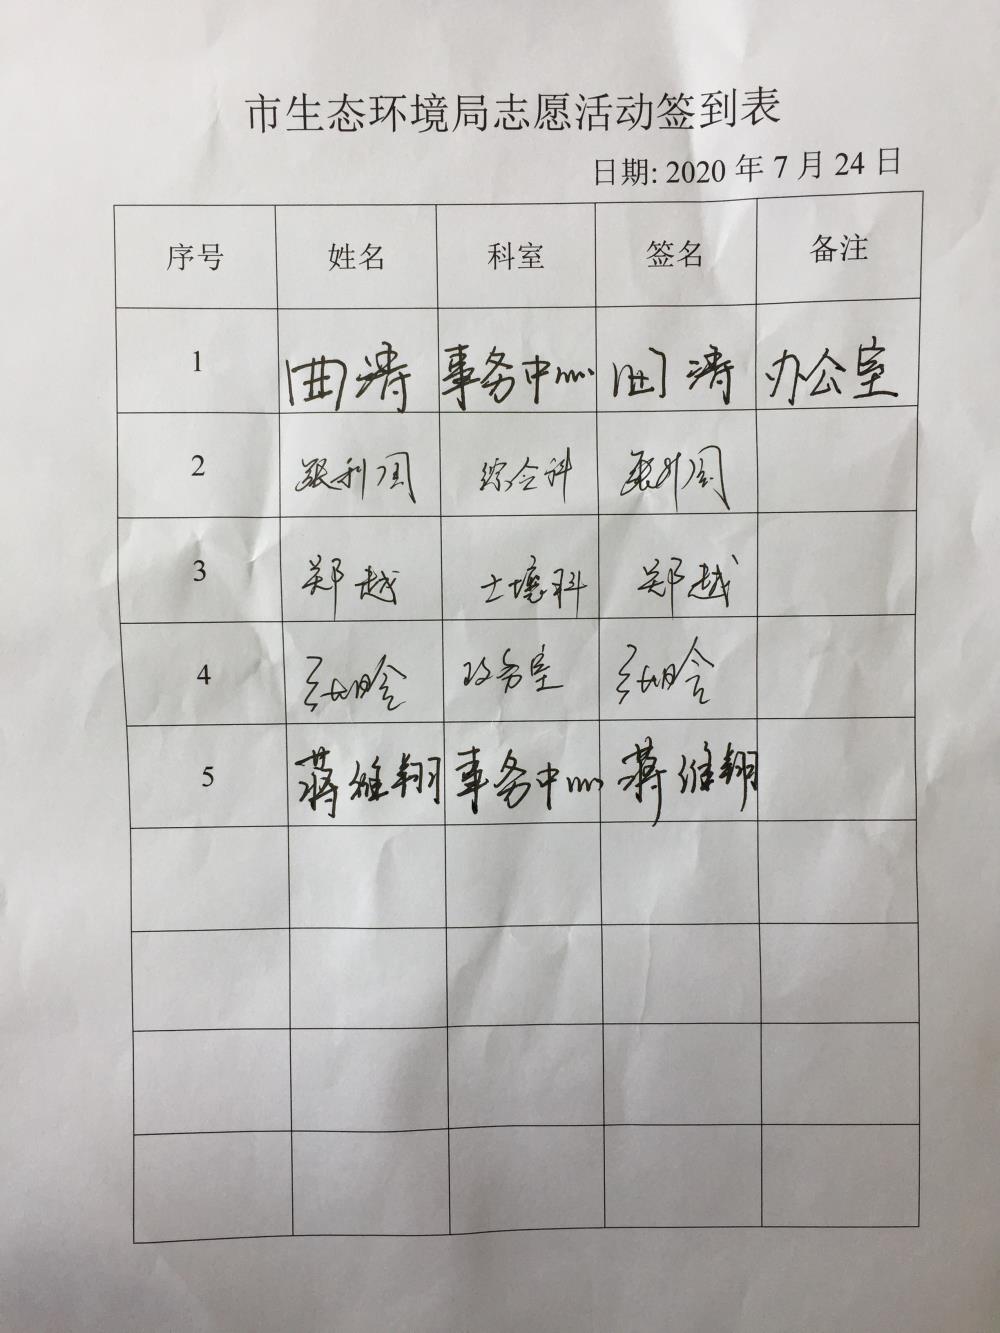 市生态环境局志愿活动签到表
日期: 2020 年 7 月 24 日
序号 姓名 科室 签名 备注
1 曲涛 事务中心 曲涛 办公室
2 综合科
3 郑越 土壤科 郑越
4 政务室
5 蒋维翔 事务中心 蒋维翔